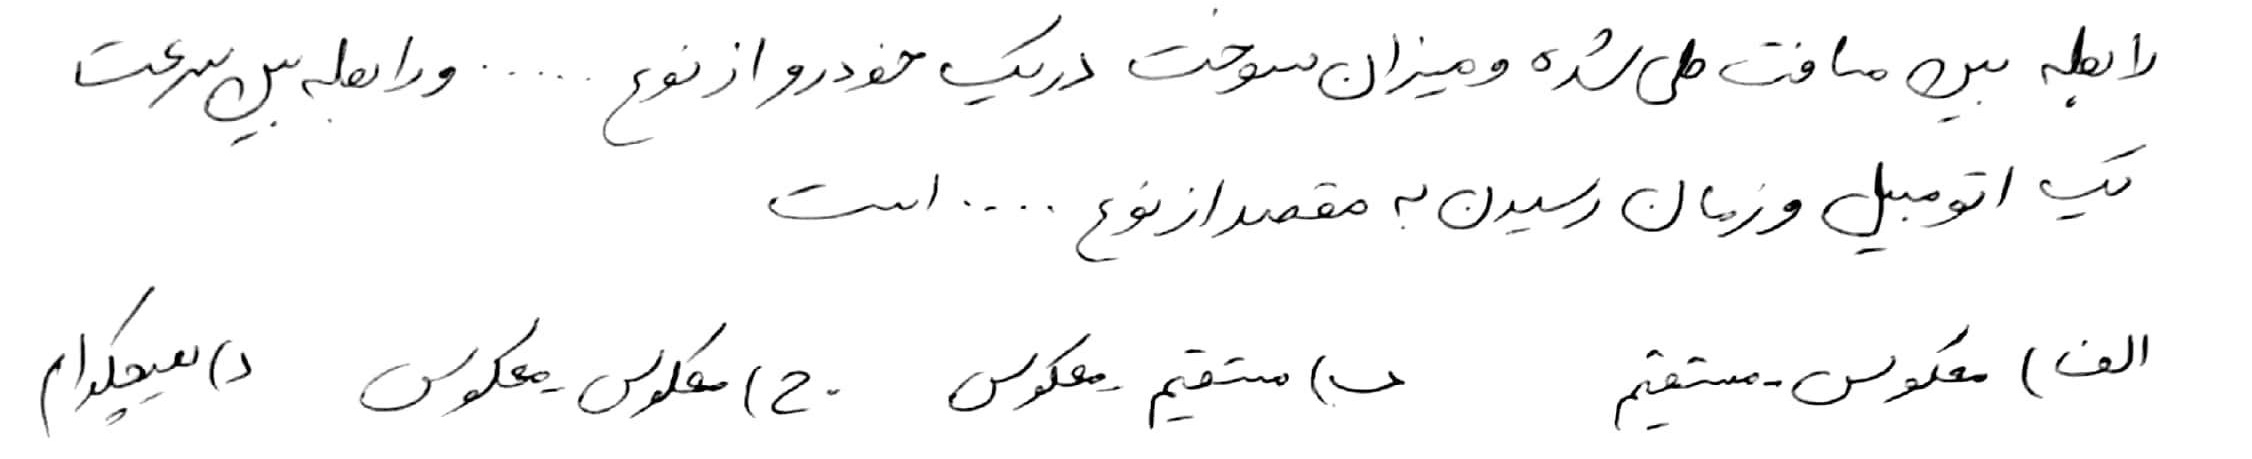 رابطه بین مسافت طی شده و میزان سوخت در یک خودرو از نوع ..... و رابطه بین سرعت
یک اتومبیل و زمان رسیدن به مقصد از نوع .... است
الف) معکوس - مستقیم ب) مستقیم - معکوس ج) معکوس - معکوس د) هیچکدام